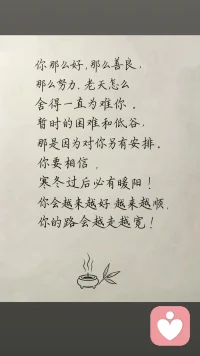 你那么好，那么善良，
那么努力，老天怎么
舍得一直为难你。
暂时的困难和低谷，
那是因为对你另有安排。
你要相信，
寒冬过后必有暖阳！
你会越来越好 越来越顺，
你的路会越走越宽！